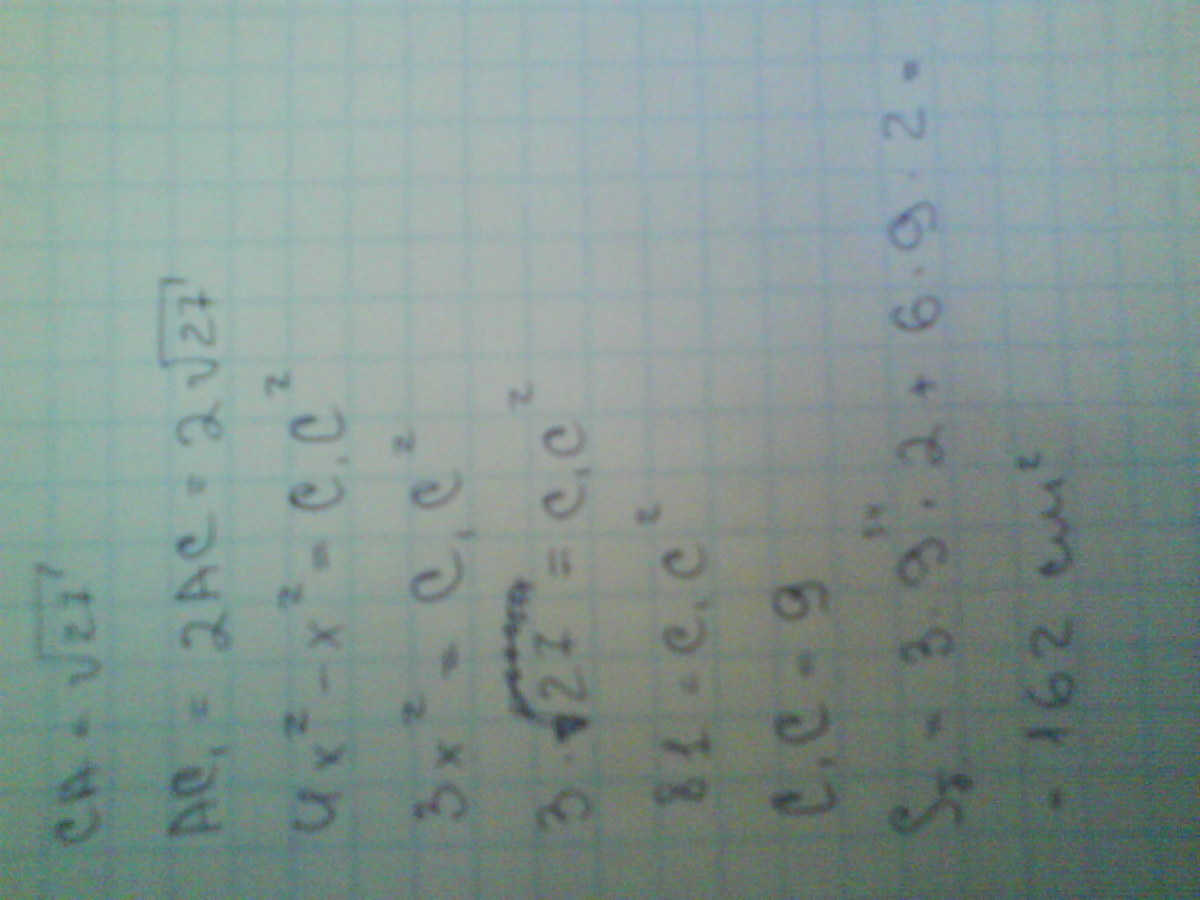 CA = √27
AC₁ = 2AC = 2√27
4x² - x² = C₁C²
3x² = C₁C²
3 · 27 = C₁C²
81 = C₁C²
C₁C = 9
= 3 · 9 · 2 + 6 · 9 · 2 =
= 162 см²